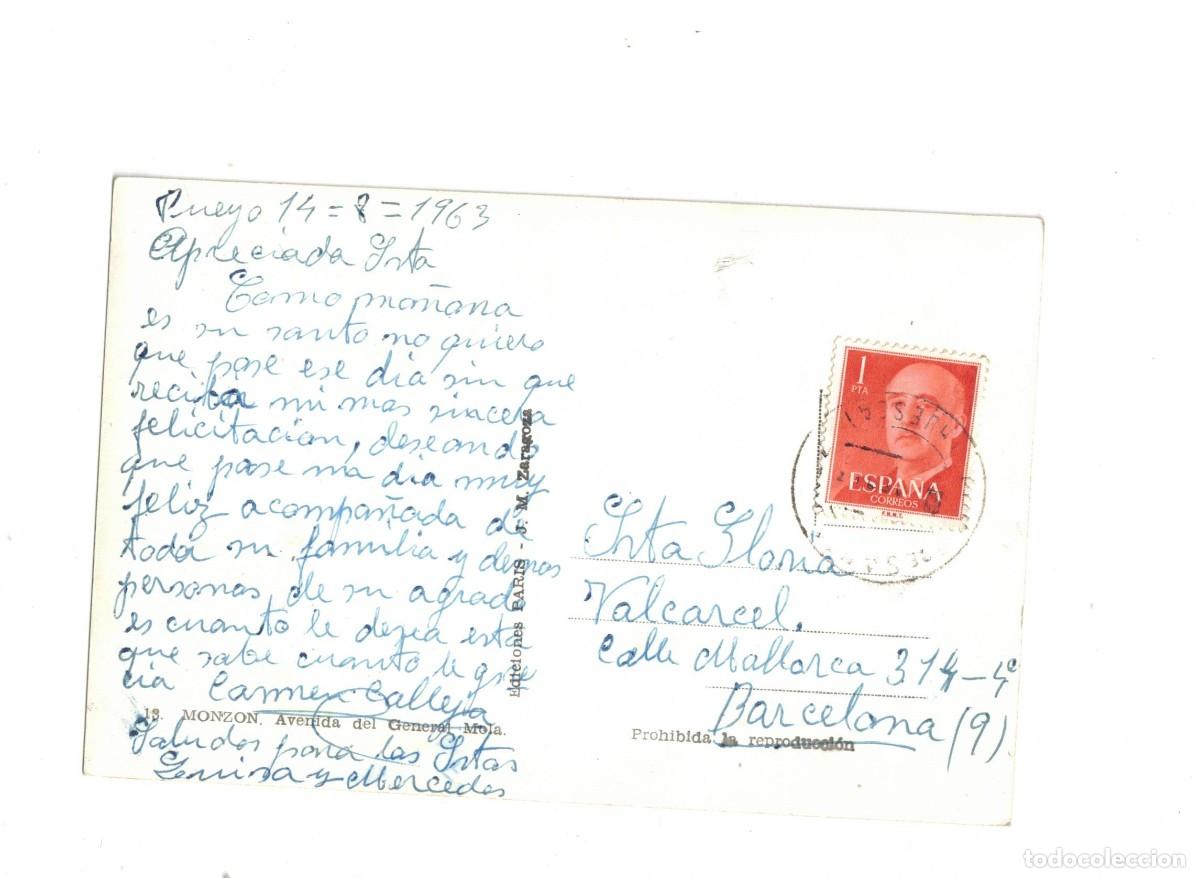 Pueyo 14=8=1963
Apreciada Srta
Como mañana
es su santo no quiero
que pase ese dia sin que
reciba mi mas sincera
felicitacion, deseando
que pase un dia muy
feliz acompañada de
toda su familia y demas
personas de su agrado
es cuanto le desea esta
que sabe cuanto le apre
cia Carmen Calleja
13. MONZON. Avenida del General Mola.
Saludos para las Srtas
Luisa y Mercedes
Ediciones PARIS - J. M. Zaragoza
1
PTA
ESPAÑA
CORREOS
F.N.M.T.
Srta Gloria
Valcarcel.
Calle Mallorca 314-4º
Barcelona (9)
Prohibida la reproducción
todocoleccion